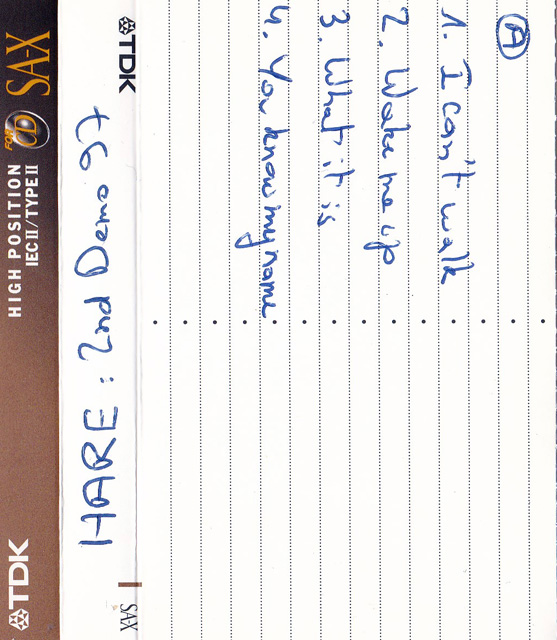 A
1. I can't walk
2. Wake me up
3. What it is
4. You know my name
TDK
SA-X
HARE : 2nd Demo 97
TDK
SA-X
FOR CD
HIGH POSITION
IECII/TYPEII
TDK